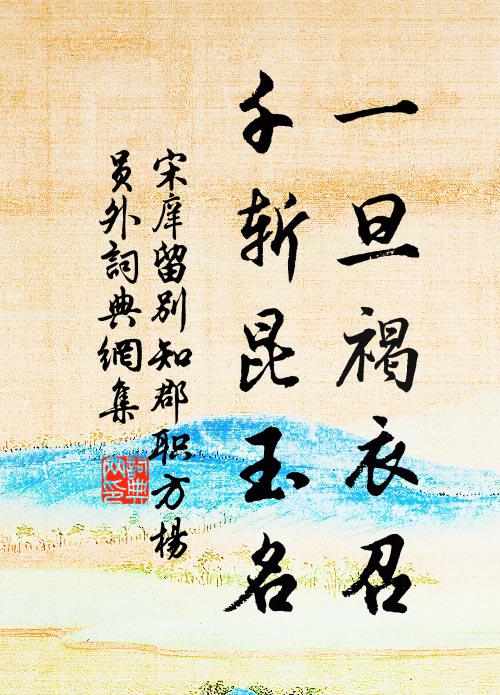 一旦褐衣召
千斩昆玉名
宋庠留别知郡职方楊
員外詞典網集